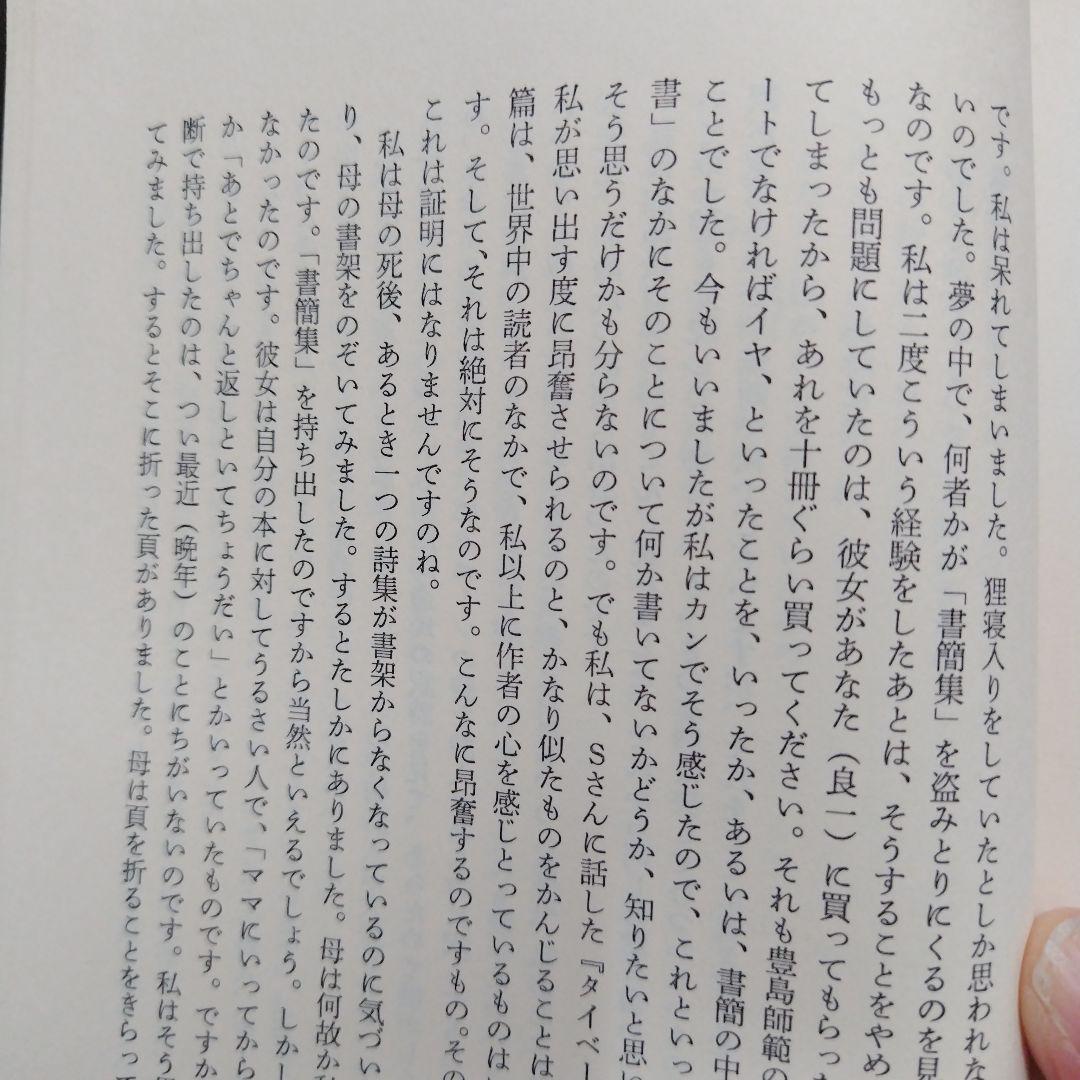 です。私は呆れてしまいました。狸寝入りをしていたとしか思われな
いのでした。夢の中で、何者かが「書簡集」を盗みとりにくるのを見
なのです。私は二度こういう経験をしたあとは、そうすることをやめ
もっとも問題にしていたのは、彼女があなた（良一）に買ってもらった
てしまったから、あれを十冊ぐらい買ってください。それも豊島師範の
ートでなければイヤ、といったことを、いったか、あるいは、書簡の中
ことでした。今もいいましたが私はカンでそう感じたので、これといっ
書」のなかにそのことについて何か書いてないかどうか、知りたいと思い
そう思うだけかも分らないのです。でも私は、Sさんに話した『タイベー
私が思い出す度に昂奮させられるのと、かなり似たものをかんじることは
篇は、世界中の読者のなかで、私以上に作者の心を感じとっているものは
す。そして、それは絶対にそうなのです。こんなに昂奮するのですもの。その
これは証明にはなりませんですのね。
私は母の死後、あるとき一つの詩集が書架からなくなっているのに気づい
り、母の書架をのぞいてみました。するとたしかにありました。母は何故か私
たのです。「書簡集」を持ち出したのですから当然といえるでしょう。しかし
なかったのです。彼女は自分の本に対してうるさい人で、「ママにいってから
か「あとでちゃんと返しといてちょうだい」とかいっていたものです。ですか
断で持ち出したのは、つい最近（晩年）のことにちがいないのです。私はそう
てみました。するとそこに折った頁がありました。母は頁を折ることをきらって